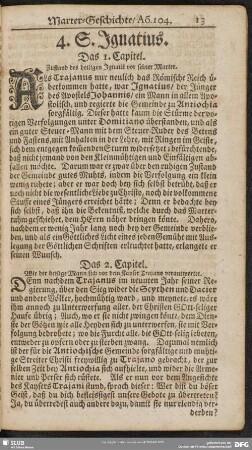 Marter-Geschichte/ Aō. 104. 13
4. S. Ignatius.
Das 1. Capitel.
Zustand des heiligen Ignatii vor seiner Marter.
ALs Trajanus nur neulich das Römische Reich ü-
berkommen hatte, war Ignatius/ der Jünger
des Apostels Johannis, ein Mann in allem Apo-
stolisch, und regierte die Gemeinde zu Antiochia
sorgfältig. Dieser hatte kaum die Stürme der vo-
rigen Verfolgungen unter Domitiano überstanden, und als
ein guter Steuer-Mann mit dem Steuer-Ruder des Betens
und Fastens, mit Anhalten in der Lehre, mit Ringen im Geiste,
sich dem entgegen kommenden Sturm widersetzet; besorchtend,
daß nicht jemand von den Kleinmüthigen und Einfältigen ab-
fallen möchte. Darum war er zwar über den ruhigen Zustand
der Gemeinde gutes Muhts, indem die Verfolgung ein klein
wenig ruhete; aber er war doch bey sich selbst betrübt, daß er
noch nicht die wesentliche Liebe zu Christo, noch die vollkommene
Stuffe eines Jüngers erreichet hätte; Denn er bedachte bey
sich selbst, daß ihn die Bekentnuß, welche durch das Marter-
thum geschiehet, dem HErrn näher bringen könte. Dahero,
nachdem er wenig Jahr lang noch bey der Gemeinde verblie-
ben, und als ein Göttliches Liecht eines jeden Gemühte mit Ausle-
gung der Göttlichen Schrifften erleuchtet hatte, erlangete er
seinen Wunsch.
Das 2. Capitel.
Wie der heilige Mann sich vor dem Kayser Trajano verantwortet.
DEnn nachdem Trajanus im neunten Jahr seiner Re-
gierung, über den Sieg wider die Scythen und Dacier
und andere Völcker, hochmühtig ward, und meynete, es wäre
ihm annoch zu Unterwerffung aller, der Christen GOtt-seliger
Hauffe übrig; Auch, wo er sie nicht zwingen könte, den Dien-
ste der Götzen mit alle Heyden sich zu unterwerffen, sie mit Ver-
folgung bedrohete; wo die Furcht alle, die GOtt-selig lebeten,
entweder zu opfern oder zu sterben zwang. Dazumal nemlich
ist der für die Antiochische Gemeinde sorgfältige und muhti-
ge Streiter Christi freywillig zu Trajano gebracht, der zur
selben Zeit bey Antiochia sich aufhielte, und wider die Arme-
nier und Perser sich rüstete. Als er nun vor dem Angesichte
des Kaysers Trajans stund, sprach dieser: Wer bist du böser
Geist, daß du dich befleissigest unsere Gebote zu übertreten?
Ja, du überredest auch andere dazu, damit sie nur elendig ver-
derben?